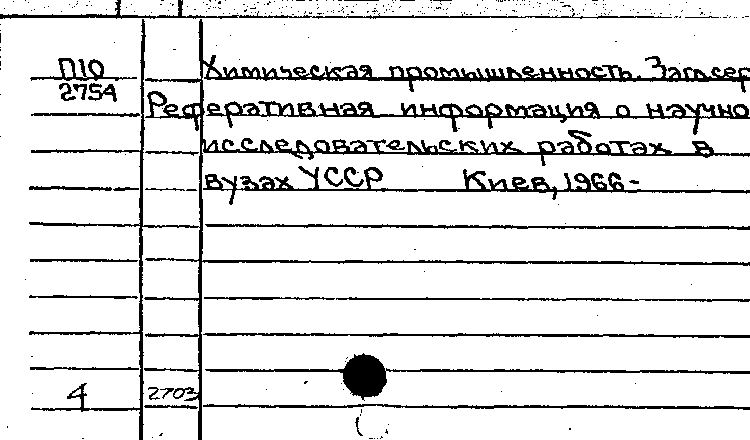 П10 Химическая промышленность. Загл.сер
2754
Реферативная информация о научно
исследовательских работах в
вузах УССР Киев, 1966-
4 2703